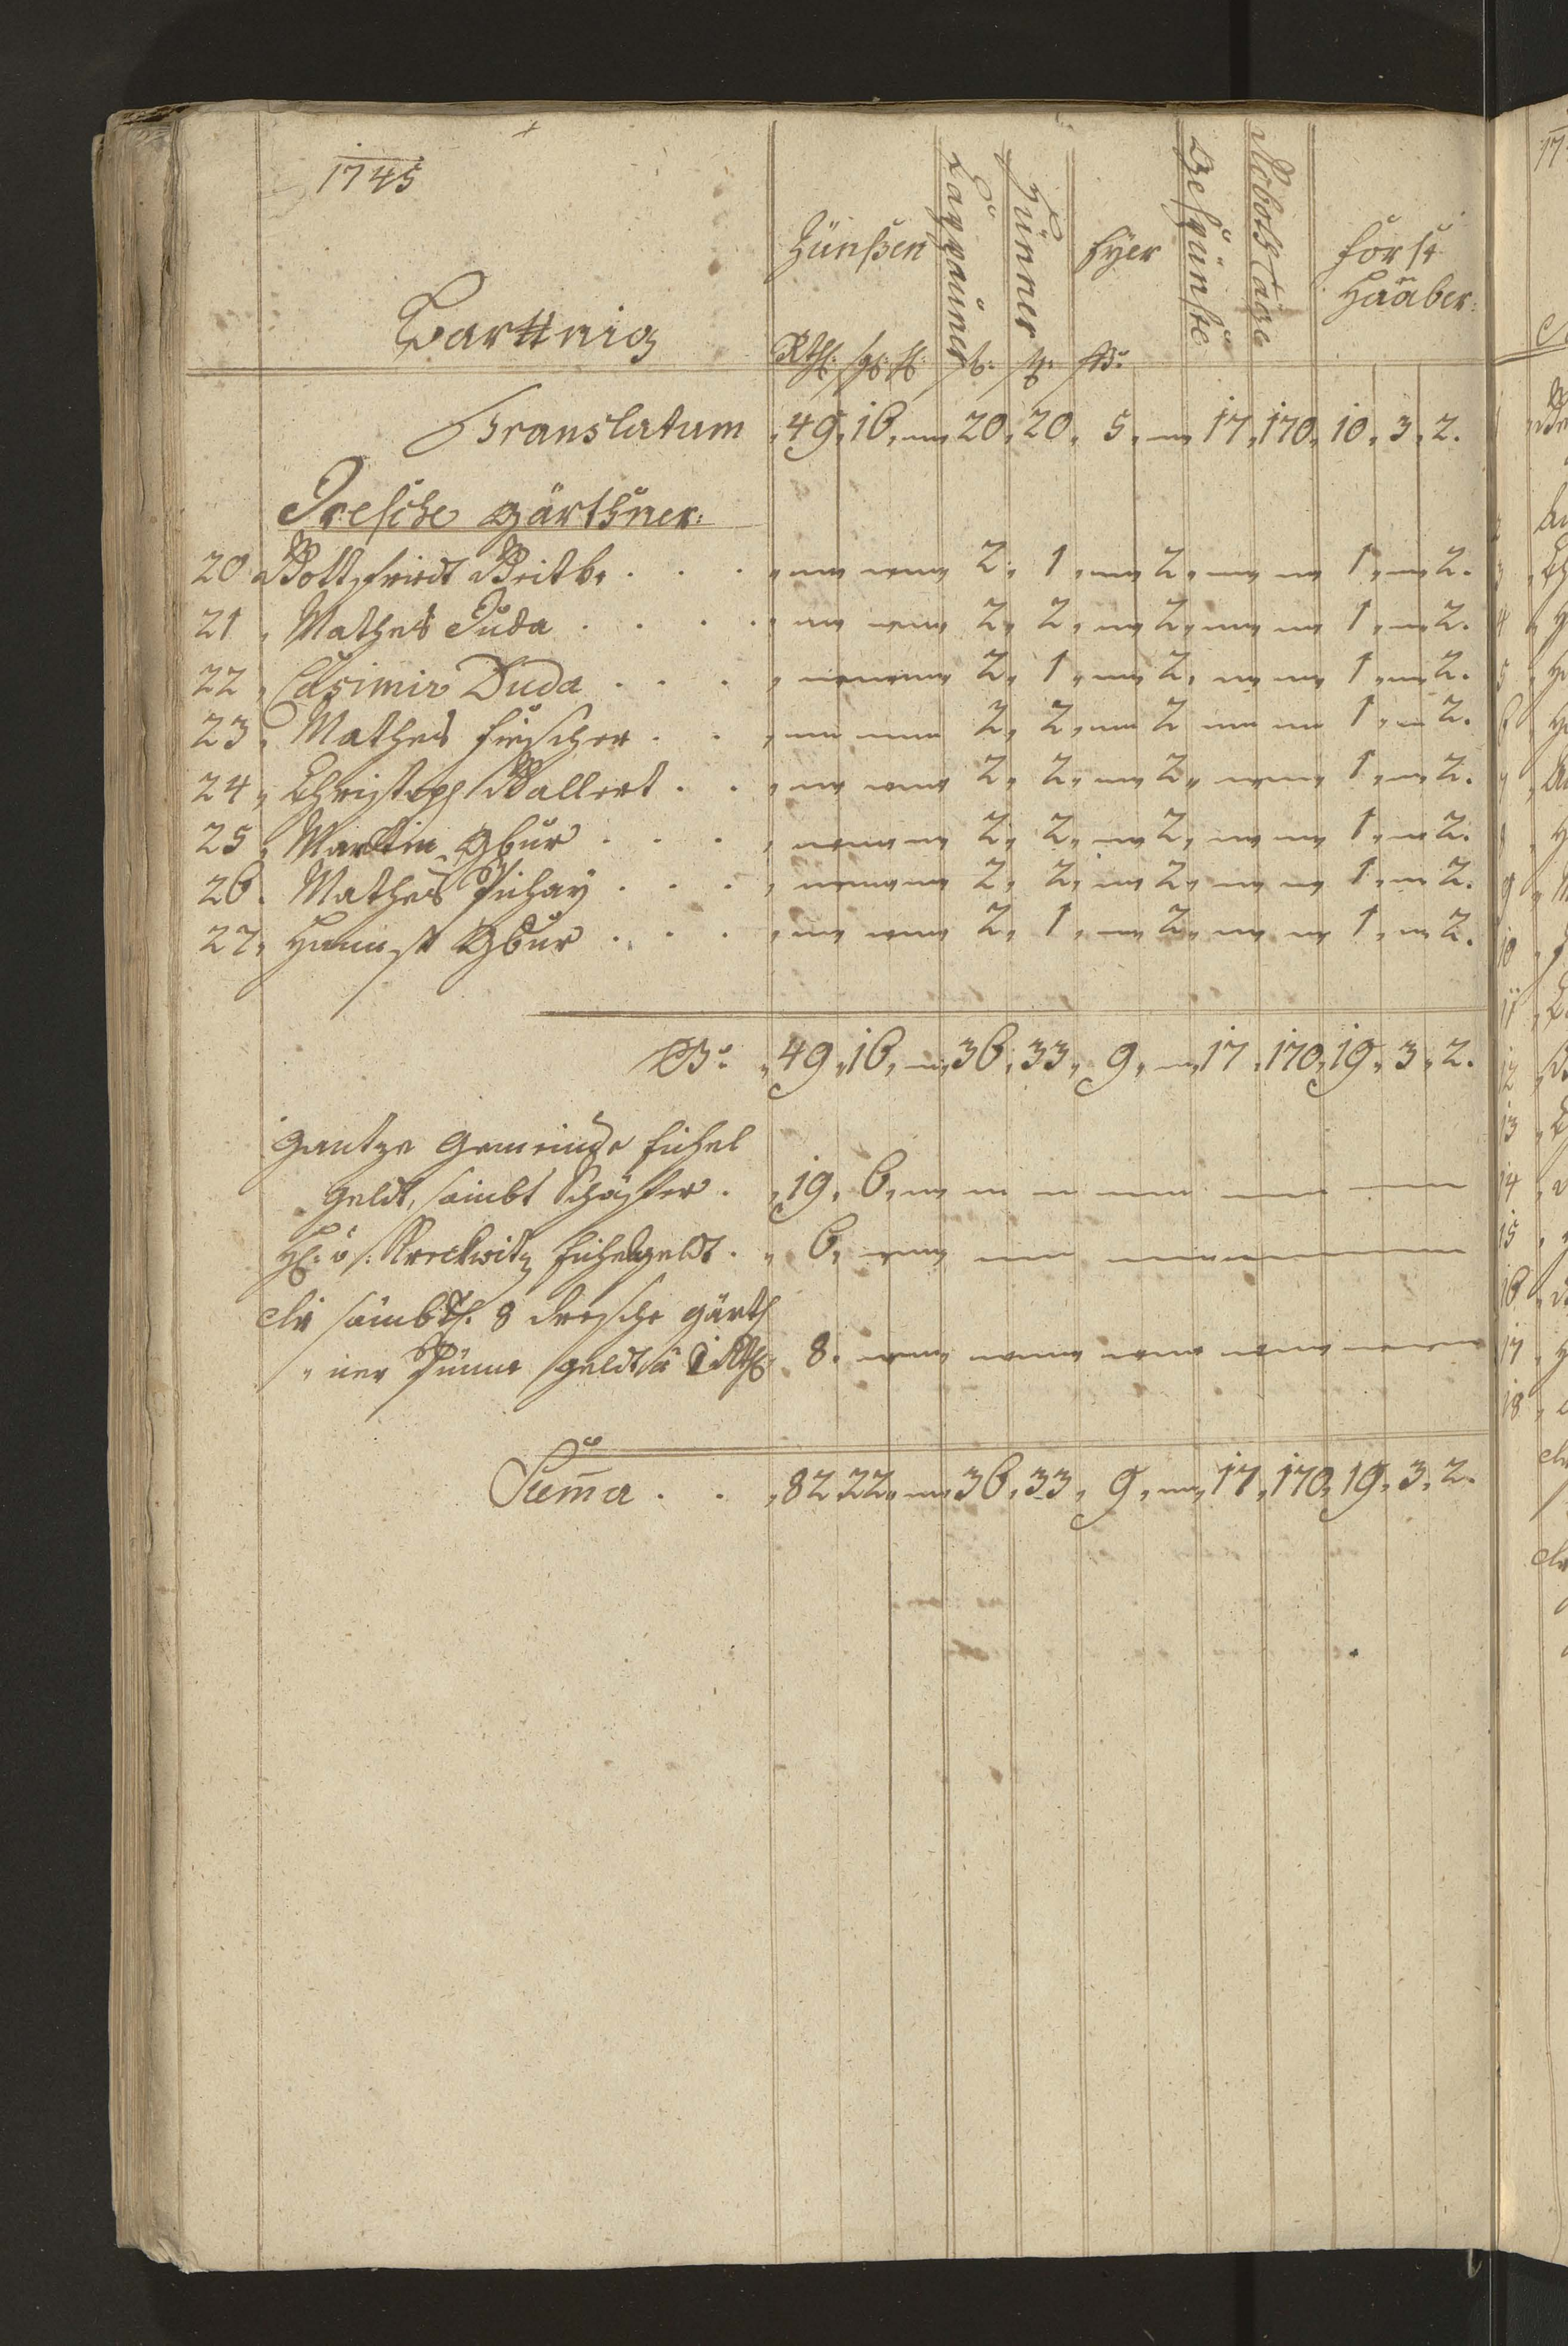 1745
Barttnig
Zünßen
Cappauner
Hünner
Eyer
Gespünste
Roboth Tage
Forst
Haaber:
Rthl: sgl: hl: st: st: ßo:
Translatum „ 49, 16, — „ 20, 20, 5, — „ 17, 170, 10, 3, 2.
Dresche gärthner:
20 Gottfriedt . . . „ — — 2, 1, — 2, — — 1, — 2.
21 „ Mathes Duda . . . . „ — — 2, 2, — 2, — — 1, — 2.
22 „ Casimir Duda . . . „ — — 2, 1, — 2, — — 1, — 2.
23 „ Mathes Fischer . . „ — — 2, 2, — 2 — — 1, — 2.
24 „ Christoph Wallert . . „ — — 2, 2, — 2, — — 1, — 2.
25 „ Martin Gbur . . . „ — — 2, 2, — 2, — — 1, — 2.
26. Mathes Puhay . . . „ — — 2, 2, — 2, — — 1, — 2.
27, Gbur . . . „ — — 2, 1, — 2, — — 1, — 2.
„ 49, 16, — „ 36, 33, 9, — „ 17, 170, 19, 3, 2.
Gantze Gemeinde Eichel
Geldt, sambt Schäffer. „ 19, 6, — — — — — —
H: v: Kreckwitz Eichelgeldt. „ 6, — — — —
Die sämbtl. 8 Dresche gärth
„ ner geldt â 1 Rthl „ 8. — — — — —
Suma . . „ 82 22, — „ 36, 33, 9, — „ 17, 170, 19, 3, 2.